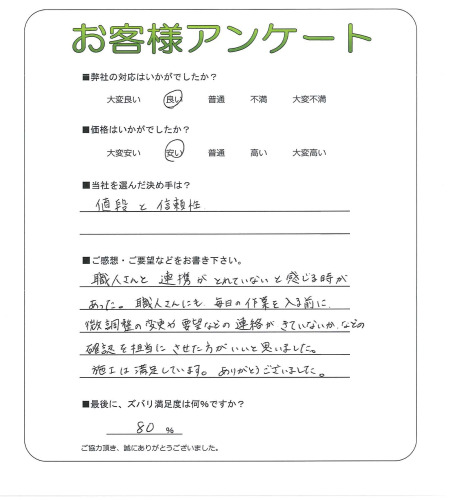 お客様アンケート
■弊社の対応はいかがでしたか?
大変良い 良い 普通 不満 大変不満
■価格はいかがでしたか?
大変安い 安い 普通 高い 大変高い
■当社を選んだ決め手は?
値段と信頼性
■ご感想・ご要望などをお書き下さい。
職人さんと連携がとれていないと感じる時が
あった。職人さんにも毎日の作業を入る前に、
微調整の変更や要望などの連絡がきていないか、などの
確認を担当にさせた方がいいと思いました。
施工は満足しています。ありがとうございました。
■最後に、ズバリ満足度は何%ですか?
80 %
ご協力頂き、誠にありがとうございました。